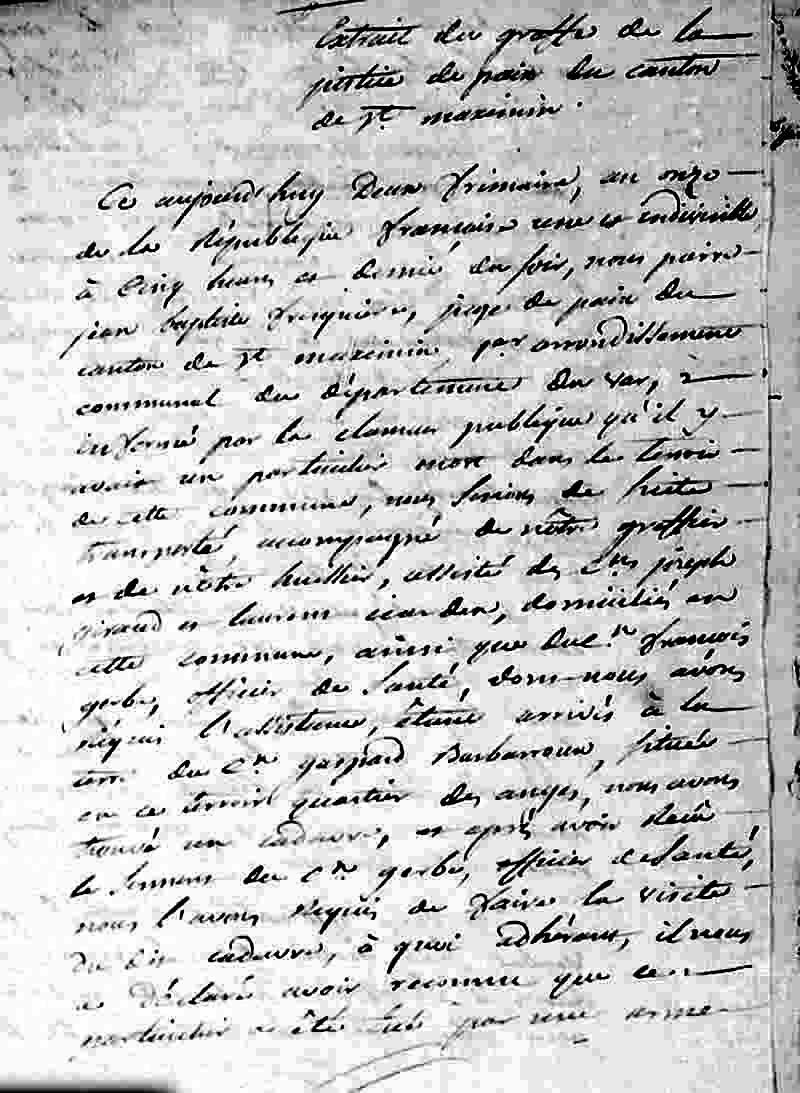 Extrait du greffe de la
justice de paix du canton
de St. maximin.
Ce aujourd'huy Deux frimaire, an onze
de la République française une et indivisible
à Cinq heures et demie du soir, nous pierre
jean baptiste juge de paix du
canton de St. maximin, per arrondissement
communal du département du var,
informé par la clameur publique qu'il y
avait un particulier mort dans le terroir
de cette commune, nous serions de suite
transporté, accompagné de nôtre greffier
et de nôtre huissier, assisté des C.ns joseph
giraud et laurent domiciliés en
cette commune, ainsi que du C.n françois
gerbe, officier de Santé, dont nous avons
réquis l'assistance, étant arrivés à la
terre du C.n gaspard Barbarroux, située
en ce terroir quartier des anges, nous avons
trouvé un cadavre, et après avoir Reçu
le serment du C.n gerbe, officier de Santé,
nous l'avons Réquis de faire la visite
du dit cadavre, à quoi adhérant, il nous
a déclaré avoir reconnu que ce
particulier a été tué par une arme